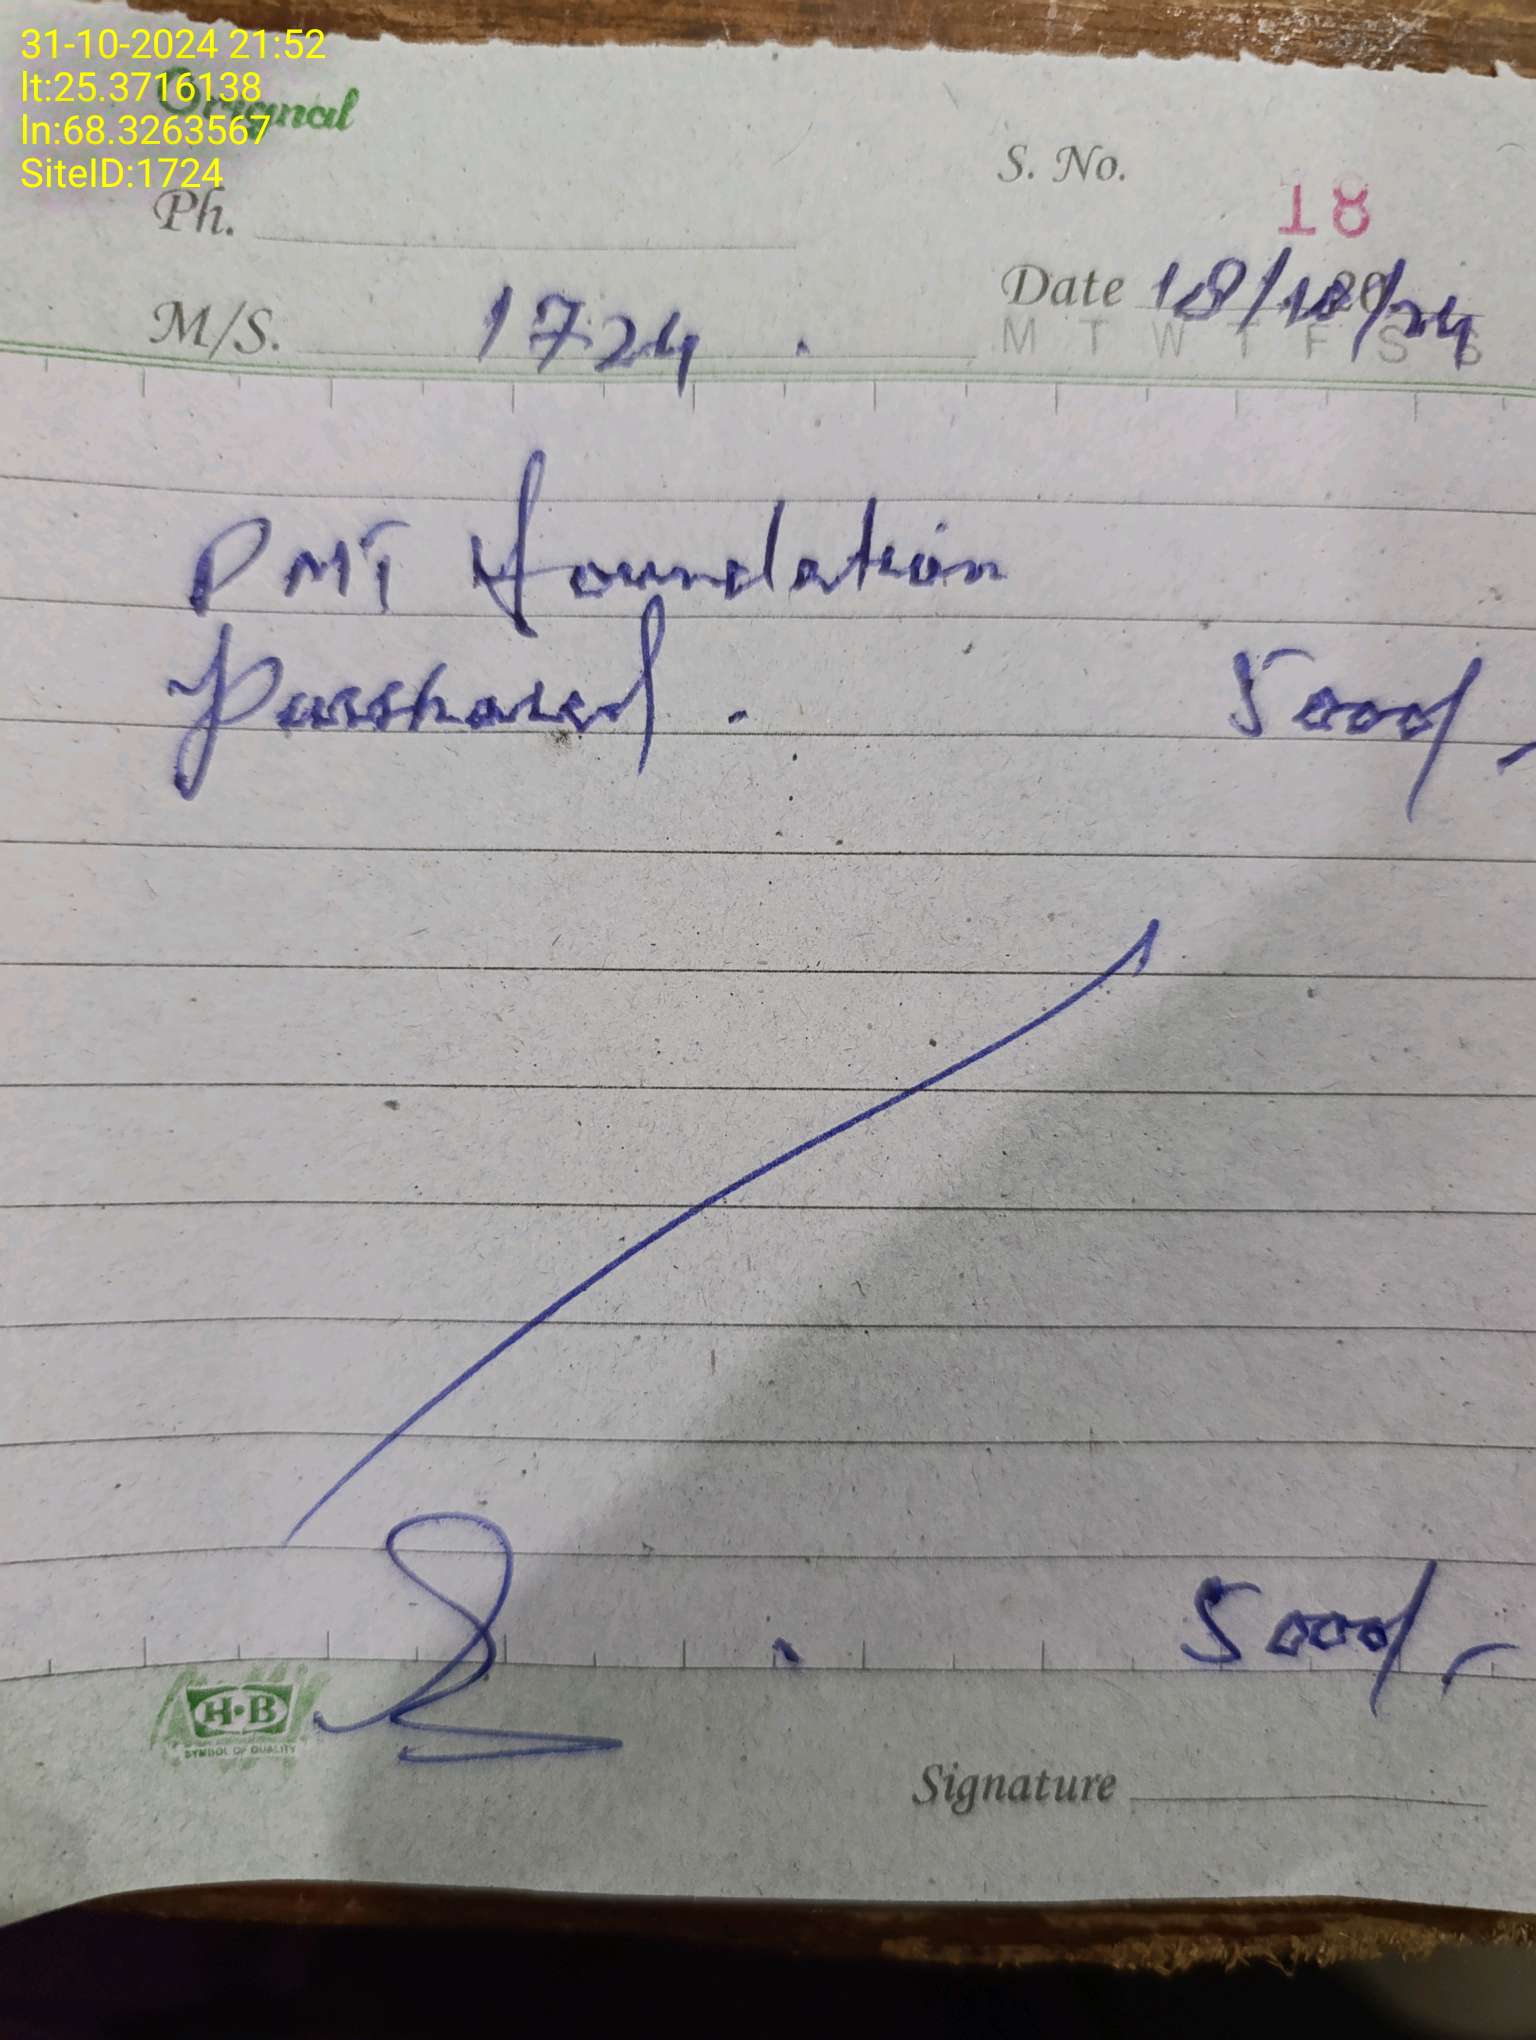 31-10-2024 21:52
lt:25.3716138
ln:68.3263567
SiteID:1724
Original
S. No.
18
Ph.
Date 18/10/24
M/S. 1724.
M T W T F S S
PMT foundation
Purchased. 5000/-
5000/-
H·B
SYMBOL OF QUALITY
Signature